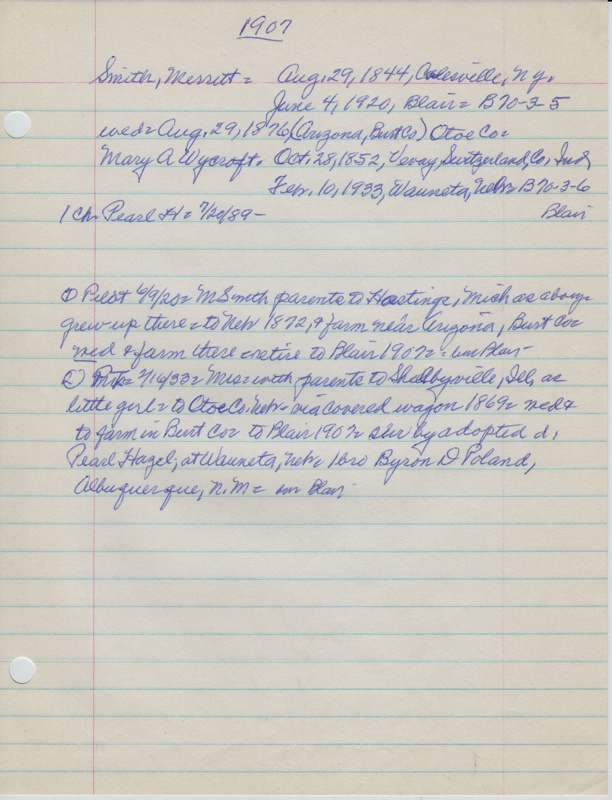 1907
Smith, Merritt = Aug. 29, 1844, Colesville, N.Y.
June 4, 1920, Blair = B70-3-5
wed = Aug. 29, 1876, (Arizona, Burt Co) Otoe Co =
Mary A Wycroft. Oct. 28, 1852, Vevay, Switzerland, Co, Ind
Febr. 10, 1933, Wauneta, Nebr = B70-3-6
1 ch. Pearl H = 7/20/89 - Blair
① Pilot 6/9/20 = M Smith parents to Hastings, Mich as above
grew up there = to Nebr 1872, & farm near Arizona, Burt Co =
wed & farm there = retire to Blair 1907 = Blair
② 2/16/33 = with parents to Shelbyville, Ill, as
little girl = to Otoe Co. Nebr = via covered wagon 1869 = wed &
to farm in Burt Co = to Blair 1907 = sur by adopted d,
Pearl Hazel, at Wauneta, Nebr = 1 bro Byron D Poland,
Albuquerque, N.M = Blair